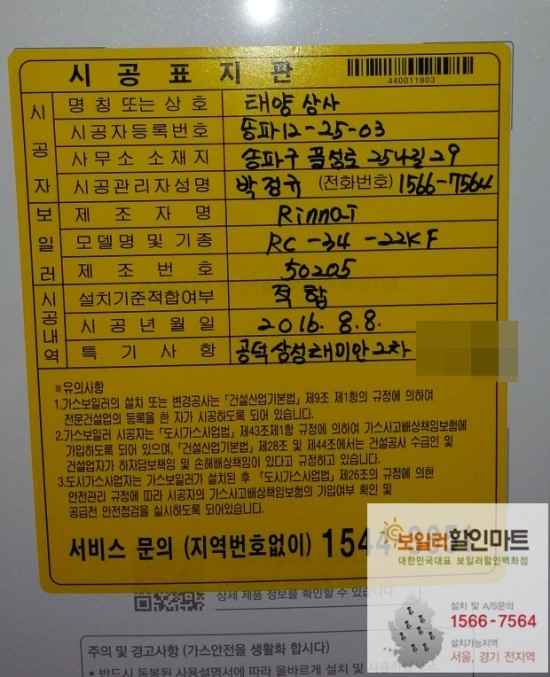 시공표지판
440011803
시공자
명칭 또는 상호 태양상사
시공자등록번호 송파12-25-03
사무소 소재지 송파구 풍성로 25길 29
시공관리자성명 박정규 (전화번호) 1566-7564
보일러
제조자명 Rinnai
모델명 및 기종 RC-34-22KF
제조번호 50205
시공내역
설치기준적합여부 적합
시공년월일 2016. 8. 8.
특기사항 공덕삼성래미안2차
※유의사항
1.가스보일러의 설치 또는 변경공사는 「건설산업기본법」 제9조 제1항의 규정에 의하여
전문건설업의 등록을 한 자가 시공하도록 되어 있습니다.
2.가스보일러 시공자는 「도시가스사업법」 제43조제1항 규정에 의하여 가스사고배상책임보험에
가입하도록 되어 있으며, 「건설산업기본법」 제28조 및 제44조에서는 건설공사 수급인 및
건설업자가 하자담보책임 및 손해배상책임이 있다고 규정하고 있습니다.
3.도시가스사업자는 가스보일러가 설치된 후 「도시가스사업법」 제26조의 규정에 의한
안전관리 규정에 따라 시공자의 가스사고배상책임보험의 가입여부 확인 및
공급전 안전점검을 실시하도록 되어있습니다.
서비스 문의 (지역번호없이) 1544-
보일러할인마트
대한민국대표 보일러할인백화점
상세 제품 정보를 확인할 수 있습니다.
설치 및 A/S문의
1566-7564
설치가능지역
서울, 경기 전지역
주의 및 경고사항 (가스안전을 생활화 합시다)
* 반드시 동봉된 사용설명서에 따라 올바르게 설치 및